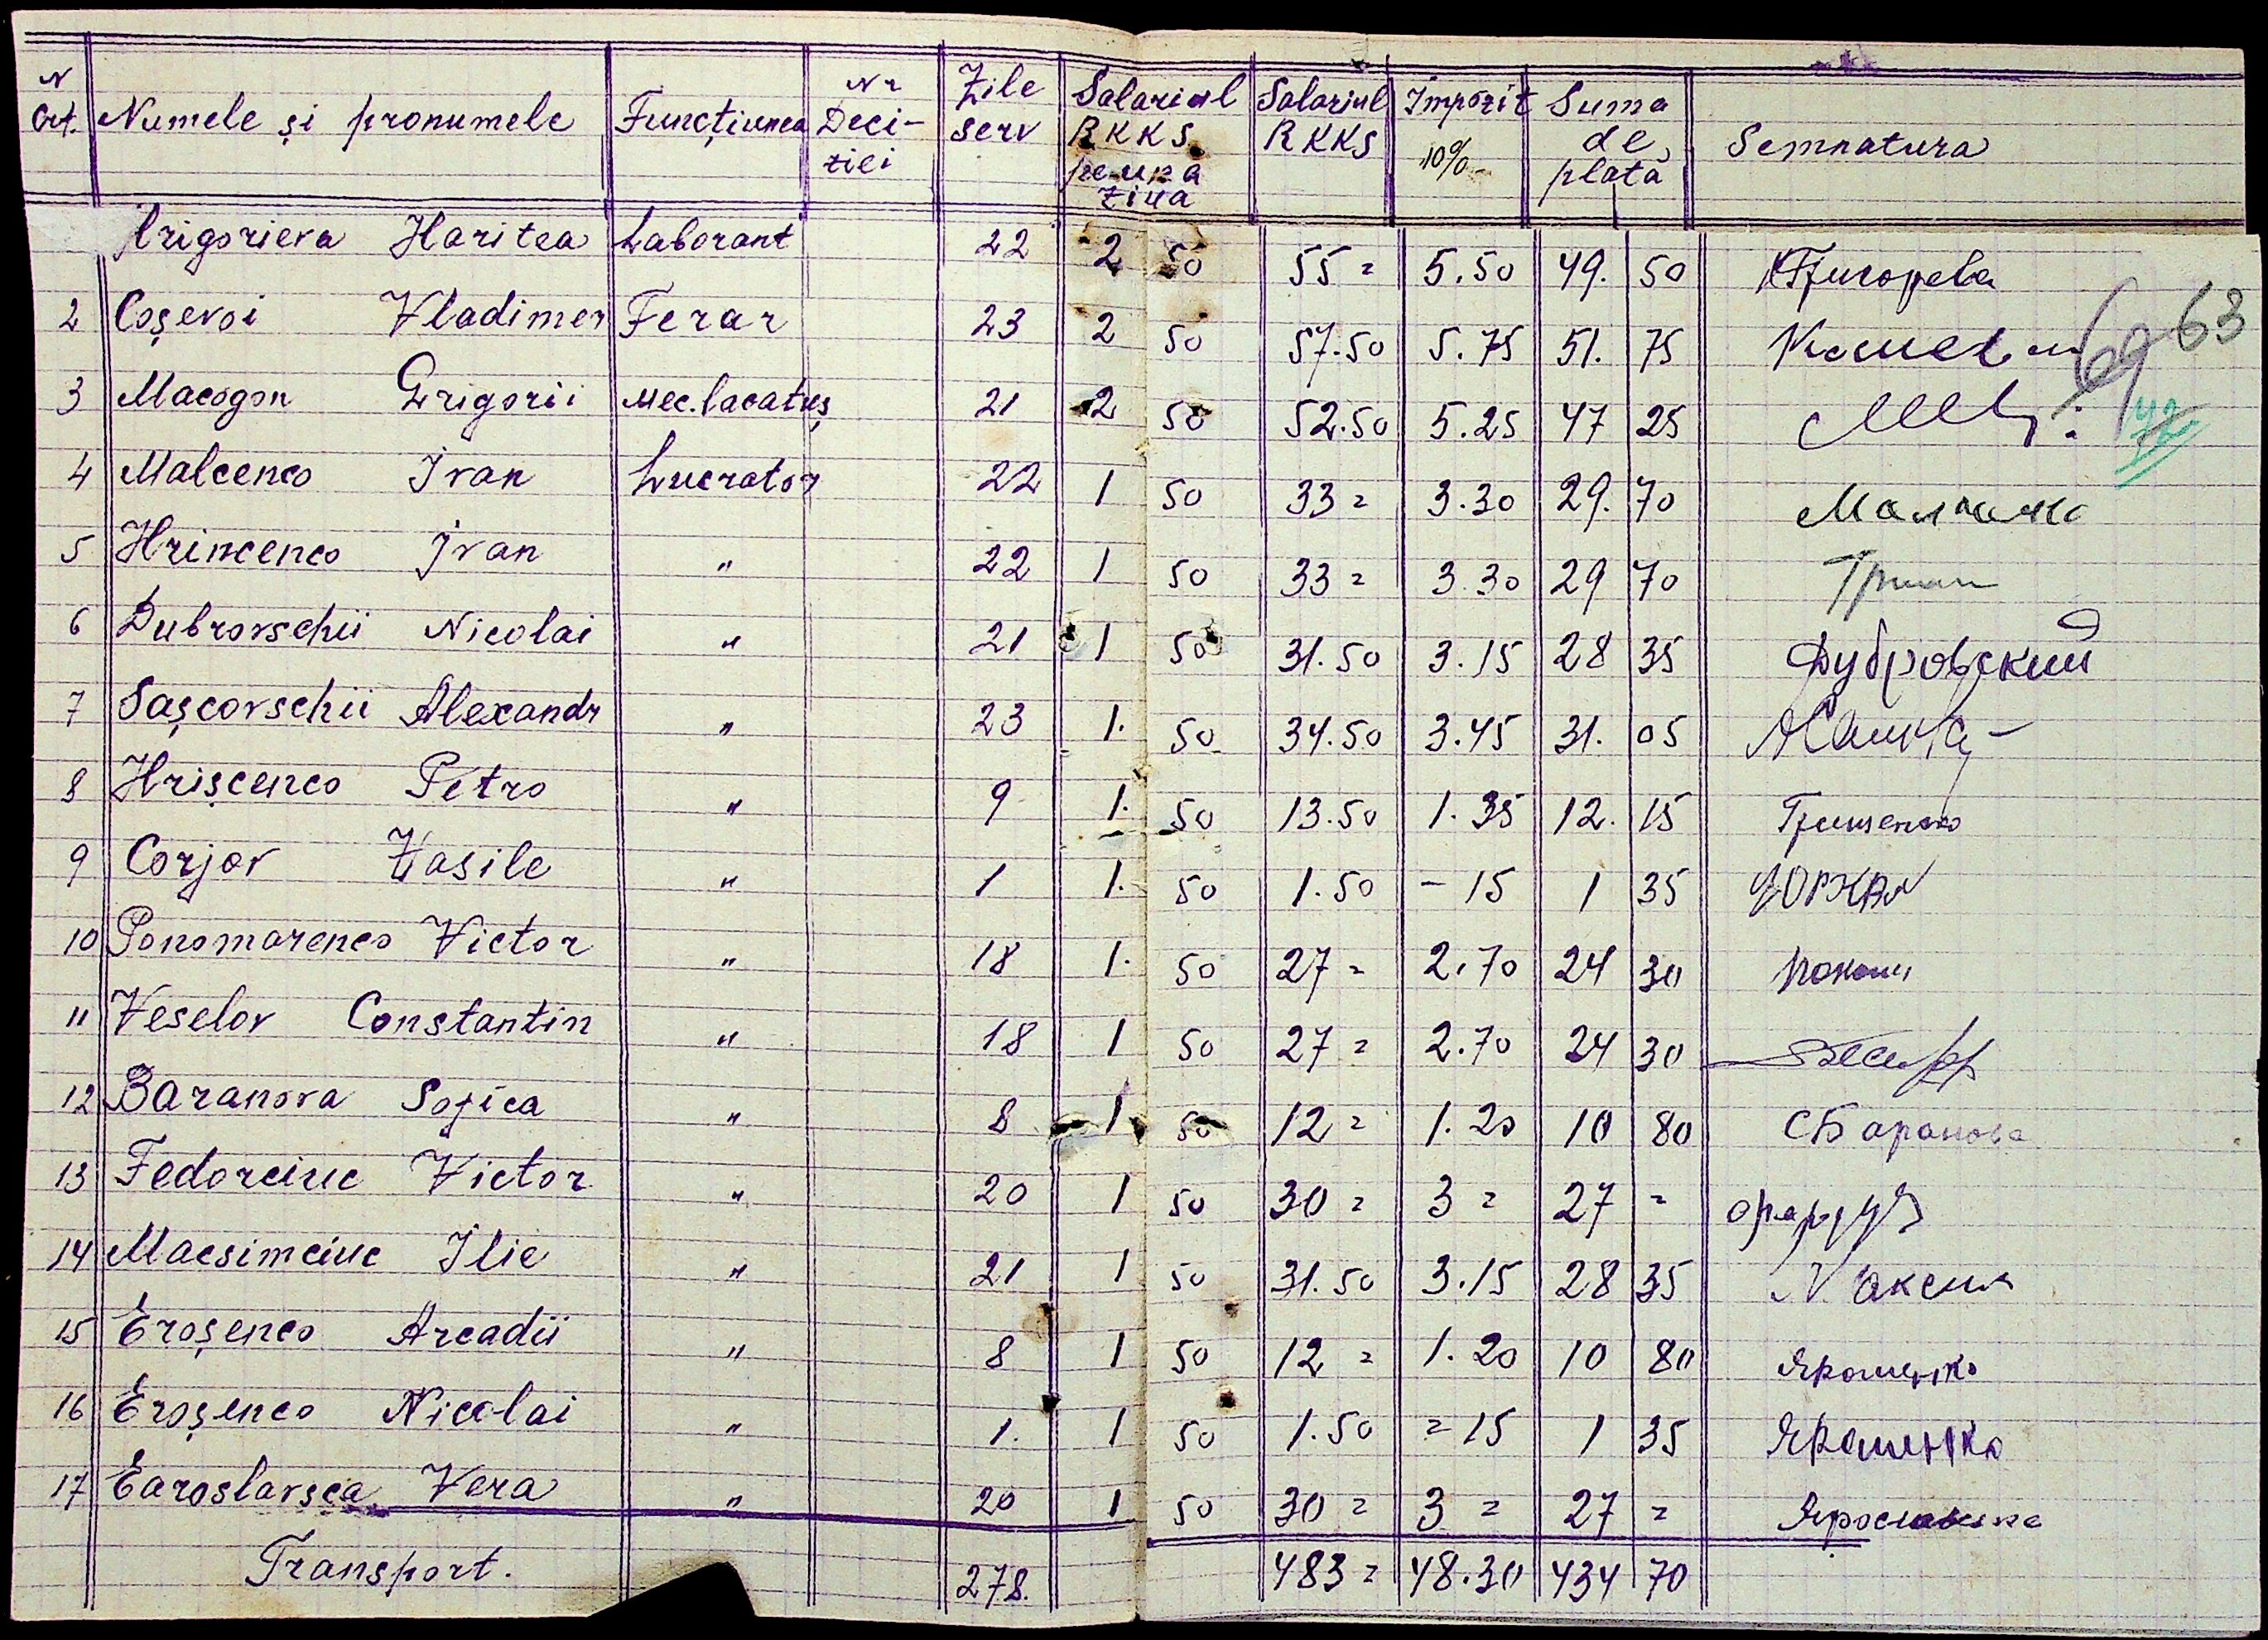 N Crt. Numele și pronumele Funcțiunea Nr Deci-ziei Zile serv Salariul RKKS pe una ziua Salariul RKKS Impozit 10% Suma de plata Semnatura
Grigorieva Haritea Laborant 22 2 50 55 = 5.50 49. 50 КГригорева
2 Coșevoi Vladimer Ferar 23 2 50 57.50 5.75 51. 75 69 63
3 Macogon Grigorii Mec. lacatuș 21 2 50 52.50 5.25 47 25 72
4 Malcenco Ivan Lucrator 22 1 50 33 = 3.30 29. 70
5 Hrincenco Ivan " 22 1 50 33 = 3.30 29 70
6 Dubrovschii Nicolai " 21 1 50 31.50 3.15 28 35 Дубровский
7 Sașcovschii Alexandr " 23 1. 50 34.50 3.45 31. 05
8 Hrișcenco Petro " 9 1. 50 13.50 1.35 12. 15 Грищенко
9 Corjov Vasile " 1 1. 50 1.50 - 15 1 35
10 Ponomarenco Victor " 18 1. 50 27 = 2.70 24 30
11 Veselov Constantin " 18 1 50 27 = 2.70 24 30
12 Baranova Sofica " 8 1 50 12 = 1.20 10 80 СБаранова
13 Fedorciuc Victor " 20 1 50 30 = 3 = 27 =
14 Macsimciuc Ilie " 21 1 50 31.50 3.15 28 35 Максим
15 Eroșenco Arcadii " 8 1 50 12 = 1.20 10 80 Ярошенко
16 Eroșenco Nicolai " 1. 1 50 1.50 = 15 1 35 Ярошенко
17 Earoslavsca Vera " 20 1 50 30 = 3 = 27 =
Transport. 278. 483 = 48.30 434 70